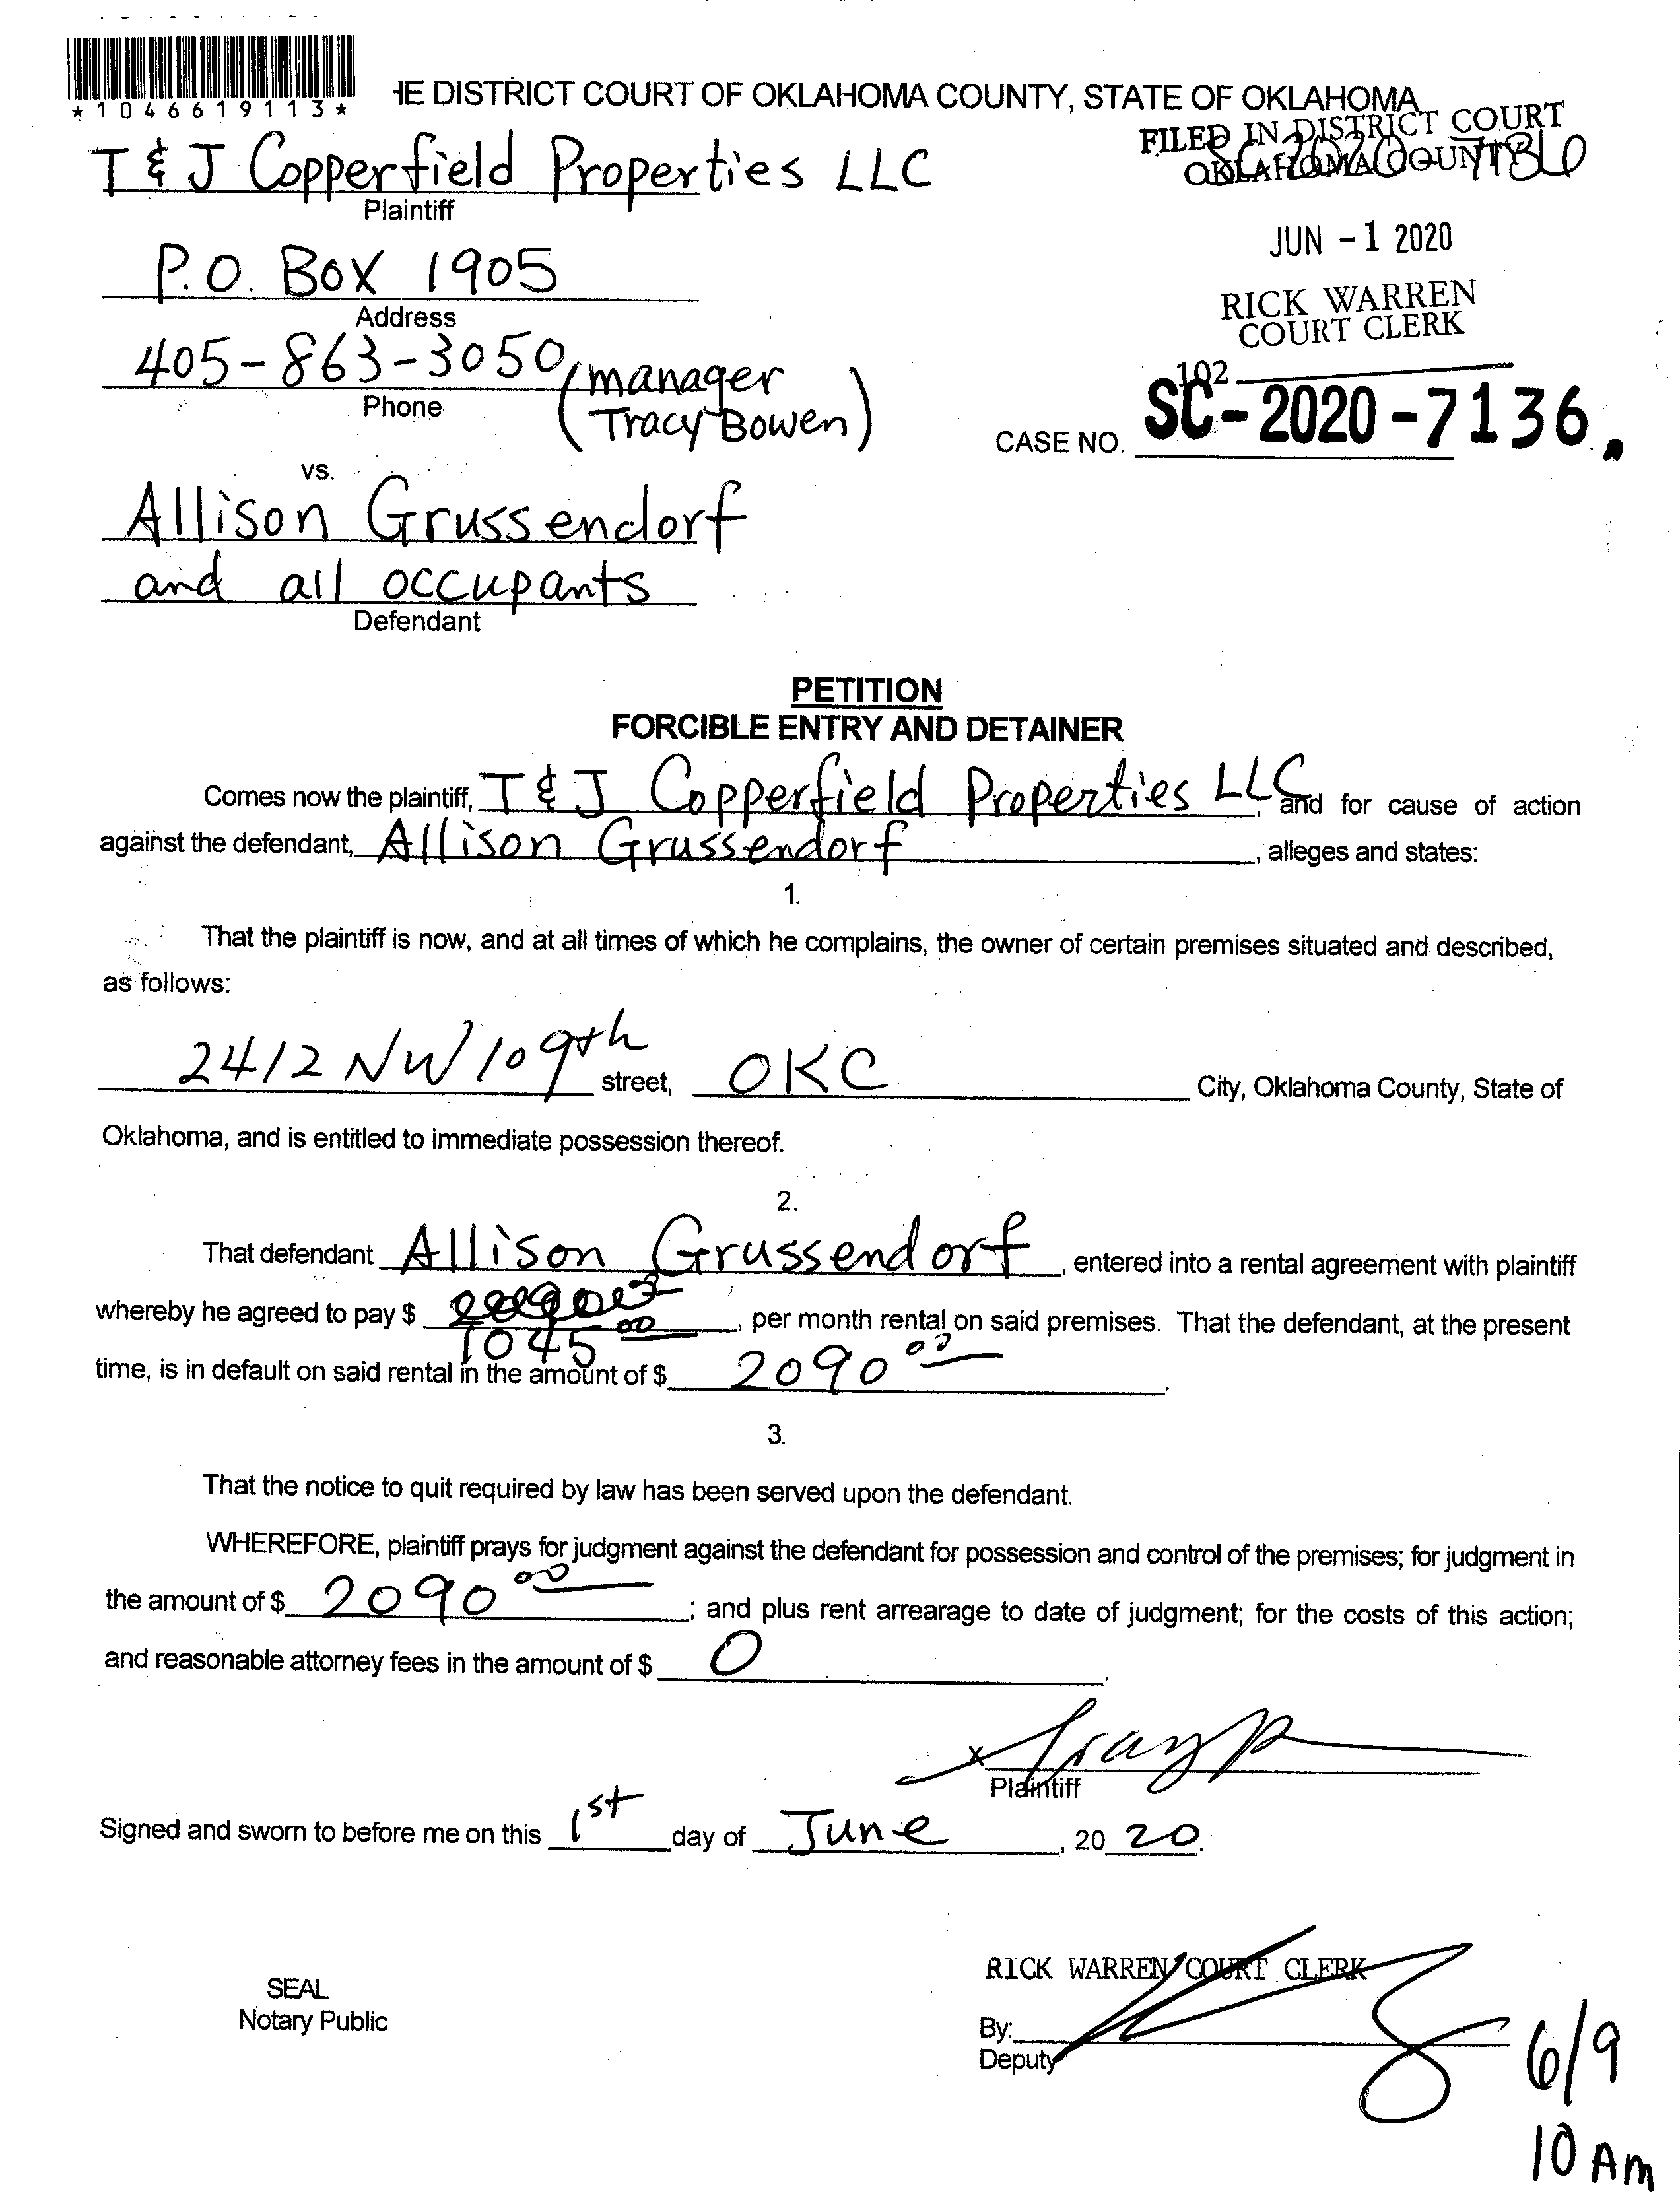 *1046619113*
HE DISTRICT COURT OF OKLAHOMA COUNTY, STATE OF OKLAHOMA
FILED IN DISTRICT COURT
OKLAHOMA COUNTY
SC-2020-7136
T & J Copperfield Properties LLC
Plaintiff
JUN -1 2020
P.O. Box 1905
Address
RICK WARREN
COURT CLERK
405-863-3050 (manager
Phone
Tracy Bowen)
102
CASE NO. SC-2020-7136.
vs.
Allison Grussendorf
and all occupants
Defendant
PETITION
FORCIBLE ENTRY AND DETAINER
Comes now the plaintiff, T & J Copperfield Properties LLC, and for cause of action
against the defendant, Allison Grussendorf, alleges and states:
1.
That the plaintiff is now, and at all times of which he complains, the owner of certain premises situated and described,
as follows:
2412 NW 109th street, OKC City, Oklahoma County, State of
Oklahoma, and is entitled to immediate possession thereof.
2.
That defendant Allison Grussendorf, entered into a rental agreement with plaintiff
whereby he agreed to pay $ 1045 00, per month rental on said premises. That the defendant, at the present
time, is in default on said rental in the amount of $ 2090 00.
3.
That the notice to quit required by law has been served upon the defendant.
WHEREFORE, plaintiff prays for judgment against the defendant for possession and control of the premises; for judgment in
the amount of $ 2090 00; and plus rent arrearage to date of judgment; for the costs of this action;
and reasonable attorney fees in the amount of $ 0.
x
Plaintiff
Signed and sworn to before me on this 1st day of June, 20 20.
RICK WARREN COURT CLERK
SEAL
Notary Public
By:
Deputy
6/9
10 AM